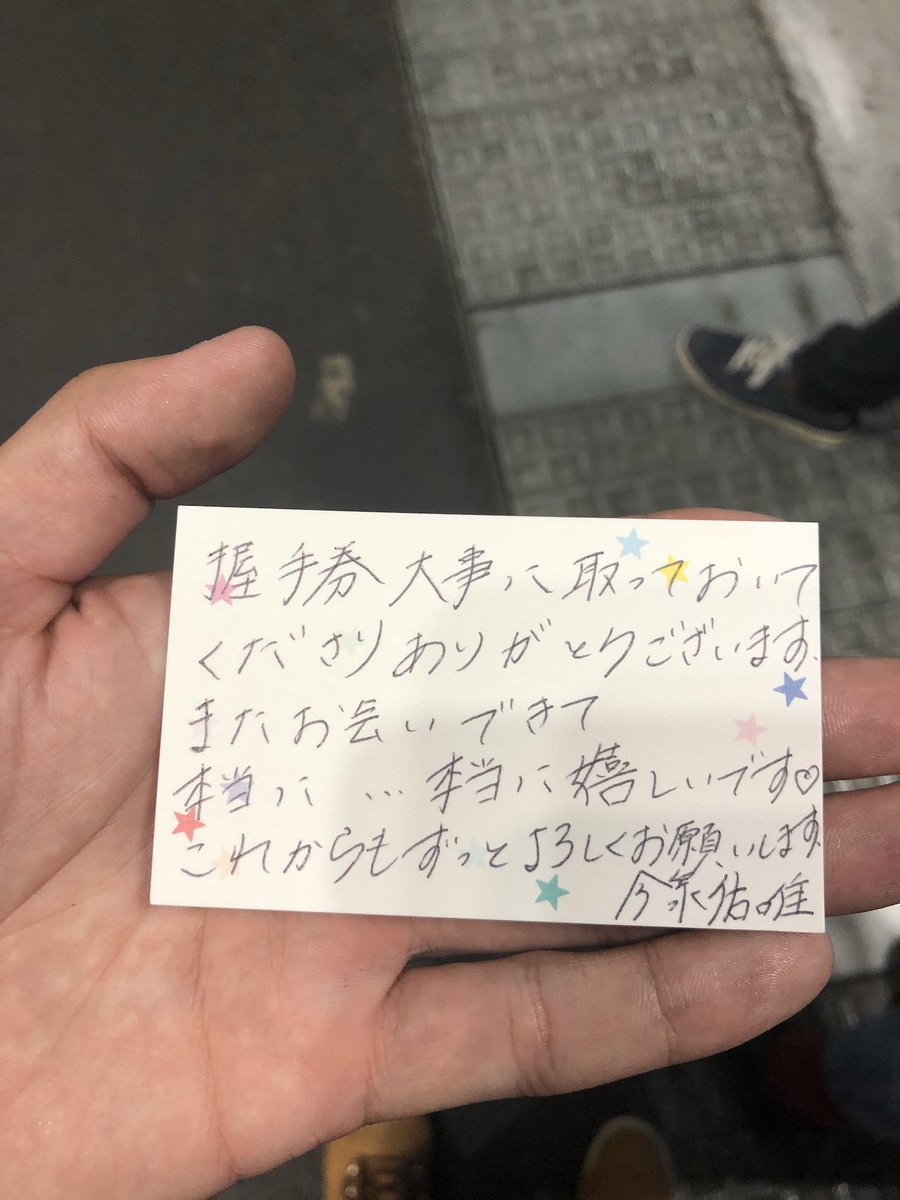 握手券大事に取っておいて
くださりありがとうございます。
またお会いできて
本当に…本当に嬉しいです♡
これからもずっとよろしくお願いします。
今泉佑唯